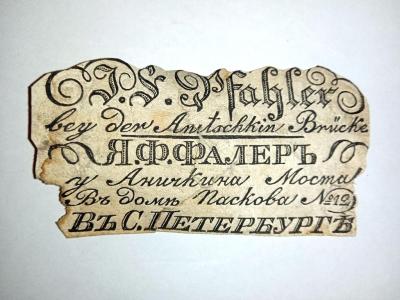 J. F. Pfahler
bey der Anitschkin Brücke
Я.Ф.ФАЛЕРЪ
у Аничкина Моста
Въ домѣ Паскова №12
ВЪ С. ПЕТЕРБУРГѢ